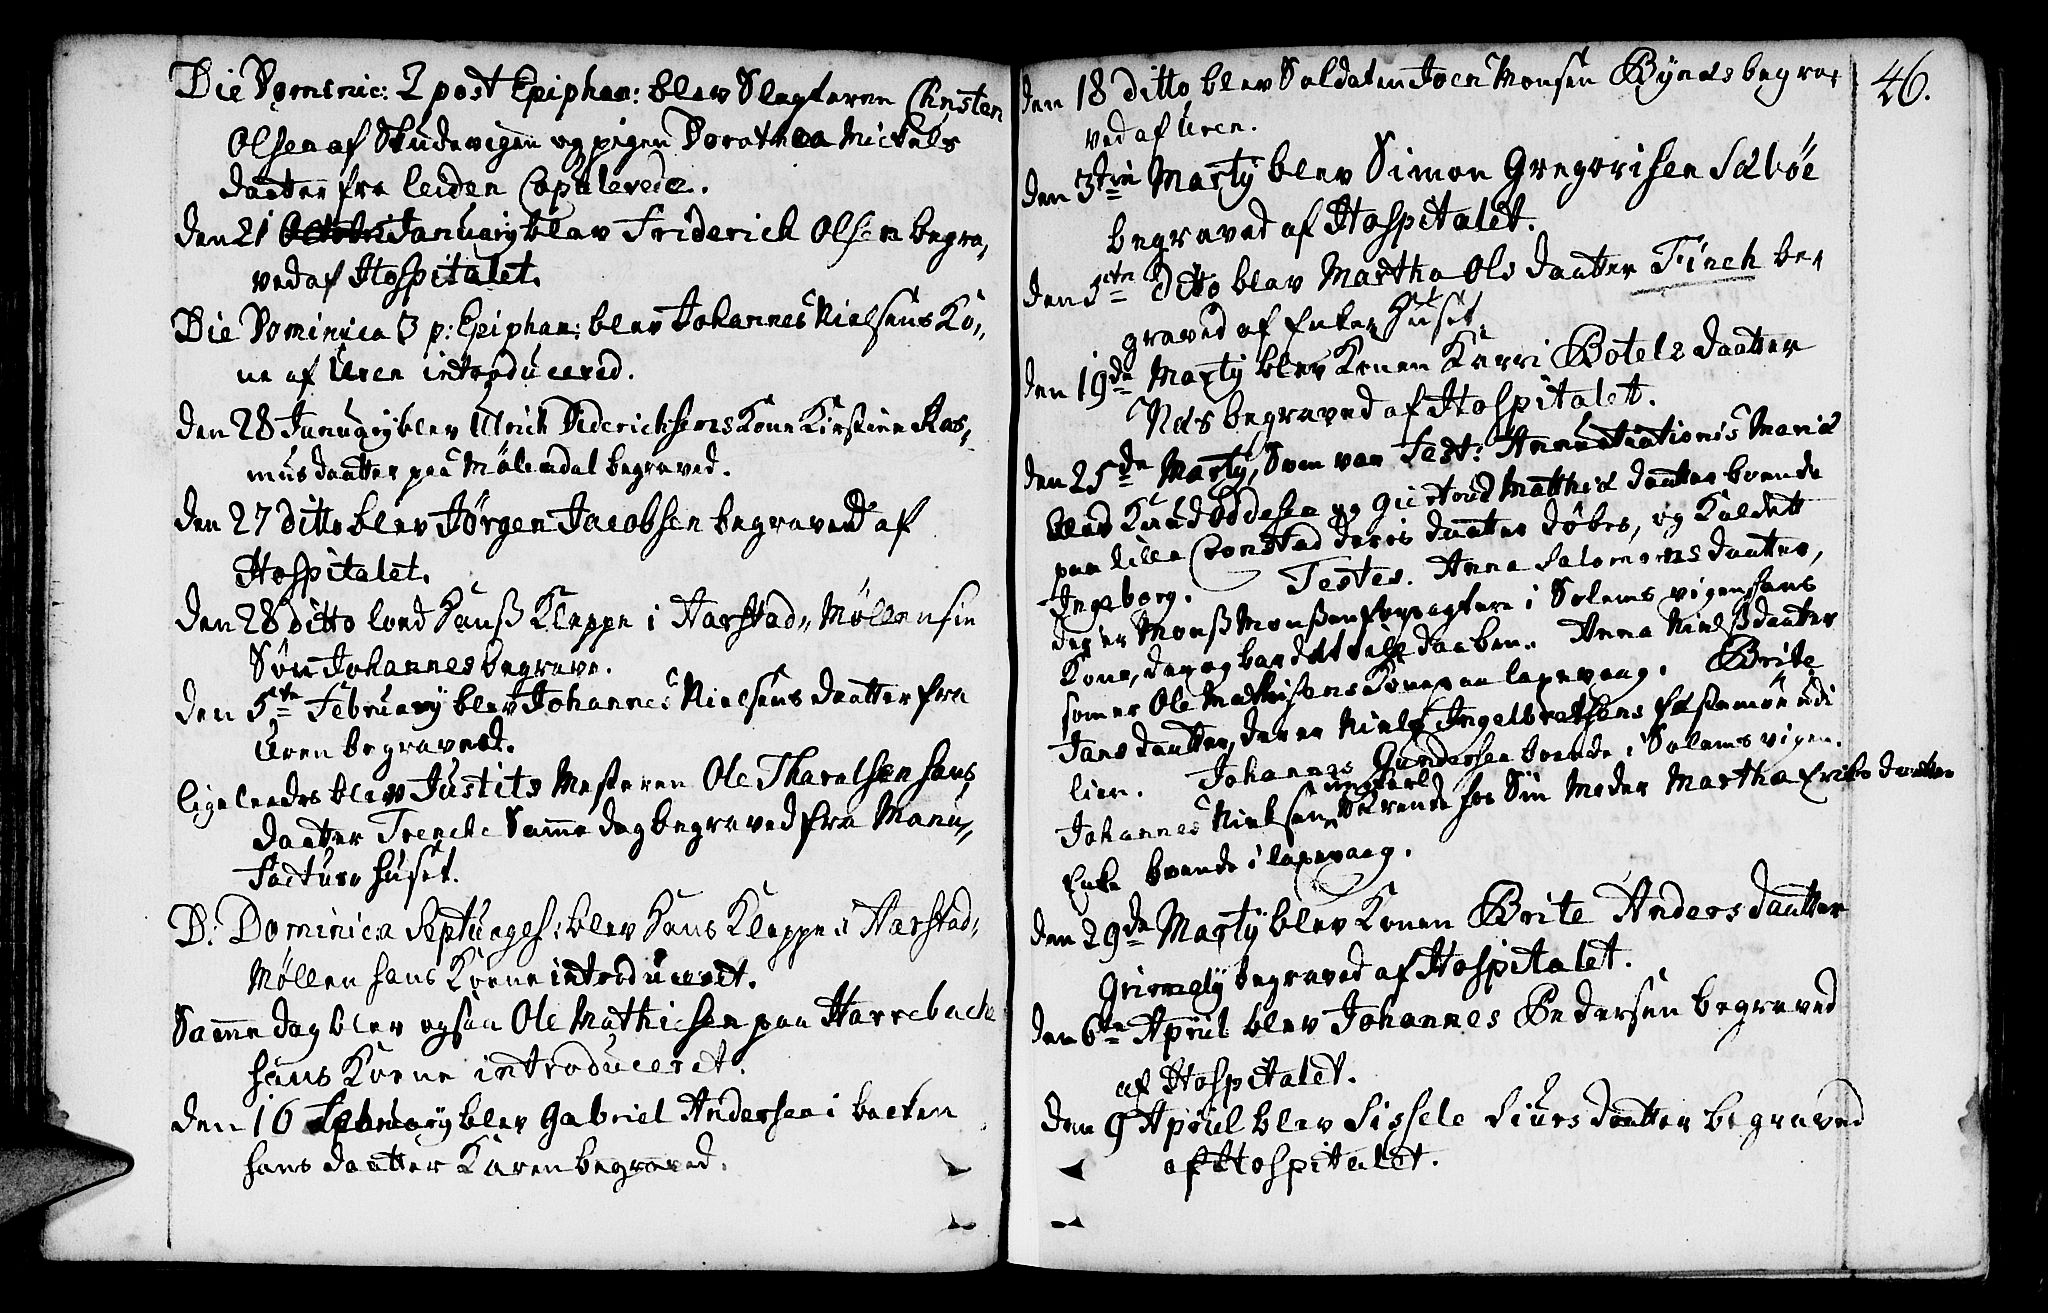 Die Domenic: 2 post Epiphan: blev Slagteren Christen
Olsen af Skudevigen og pigen Dorothea Mickels
daatter fra leiden Copulerede.
Den 21 Januarij blev Friderich Olsen begra,
ved af Hospitalet.
Die Dominica 3 p: Epiphan: blev Johannes Nielsens Ko,,
ne af Uren introducered.
Den 28 Januarij blev Ulrich Diderichsens Kone Kirstine Ras,,
mus daatter paa Mølendal begraved.
Den 27 ditto blev Jørgen Jacobsen begraved af
Hospitalet.
Den 28 ditto loed Hanß Kleppe i Harstad,, Møllen sin
Søn Johannes begrave.
Den 5te Februarij blev Johannes Nielsens daatter fra
Uren begraved.
ligeleedes blev Justits Mesteren Ole Tharalsen hans
daatter Trenche Samme dag begraved fra Manu,,
factur huset.
D: Dominica Septuages: blev Hans Kleppe i Harstad,,
Møllen hans Koene introduceret.
Samme dag blev ogsaa Ole Mathiesen paa Harrebacke
hans Koene introduceret.
Den 16 Februarij blev Gabriel Andersen i backen
hans daatter Karen begraved.
46.
den 18 ditto blev Soldaten Joen Monsen Bynes begra,
ved af Uren.
den 3die Martij blev Simon Gregorisen Sæbøe
begraved af Hospitalet.
den 5te ditto blev Martha Ols daatter Finch be,
graved af Enke Huset.
den 19de Martij blev Konen Karri Botels daatter
Næs begraved af Hospitalet.
den 25de Martij, Som var Fest: Annuntiationis Mariæ
blev Knud og Giertrud Mathiæ daatter boende
paa lille Cronstad deris daatter døbes, og Kaldett
Ingeborg. Testes. Anna Salomons daatter,
der er Monß Monßen forpagtere i Solems vigen hans
Kone, der og bar det til daaben. Anna Nielß daatter
som er Ole Mathisens Kone paa laxevaag. Brite
Jans daatter, der er Niels Ingelbretsens festemøe udi
lien. Johannes Gundersen boende i Solems vigen.
Johannes Nielsen ungkarl værende hos Sin Moder Martha Eriks daatter
Enke boende i laxevaag.
den 29de Martij blev Konen Brite Anders daatter
begraved af Hospitalet.
den 6te April blev Johannes Pedersen begraved
af Hospitalet.
den 9 April blev Sissele Siurs daatter begraved
af Hospitalet.